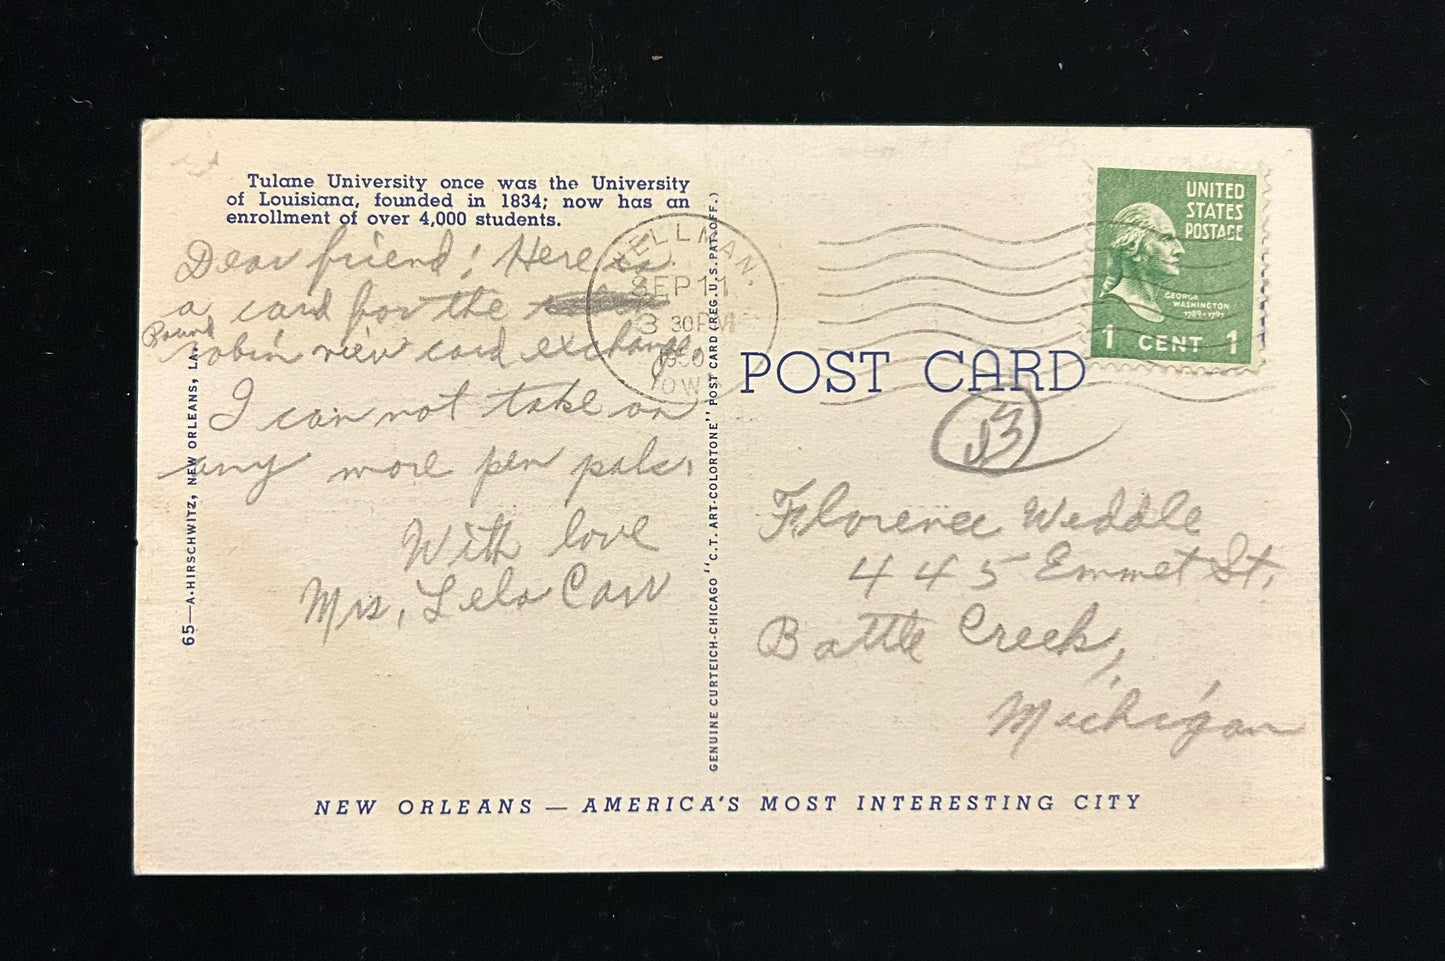 Tulane University once was the University
of Louisiana, founded in 1834; now has an
enrollment of over 4,000 students.
Dear friend; Here is
a card for the
Round
robin view card exchange.
I can not take on
any more pen pals.
With love
Mrs. Lela Carr
65—A-HIRSCHWITZ, NEW ORLEANS, LA.
GENUINE CURTEICH-CHICAGO "C.T. ART-COLORTONE" POST CARD (REG. U.S. PAT. OFF.)
WELLMAN,
SEP 11
3 30 PM
1950
IOWA
UNITED
STATES
POSTAGE
GEORGE
WASHINGTON
1789-1797
1 CENT 1
POST CARD
53
Florence Weddle
445 Emmet St.
Battle Creek,
Michigan
NEW ORLEANS — AMERICA'S MOST INTERESTING CITY